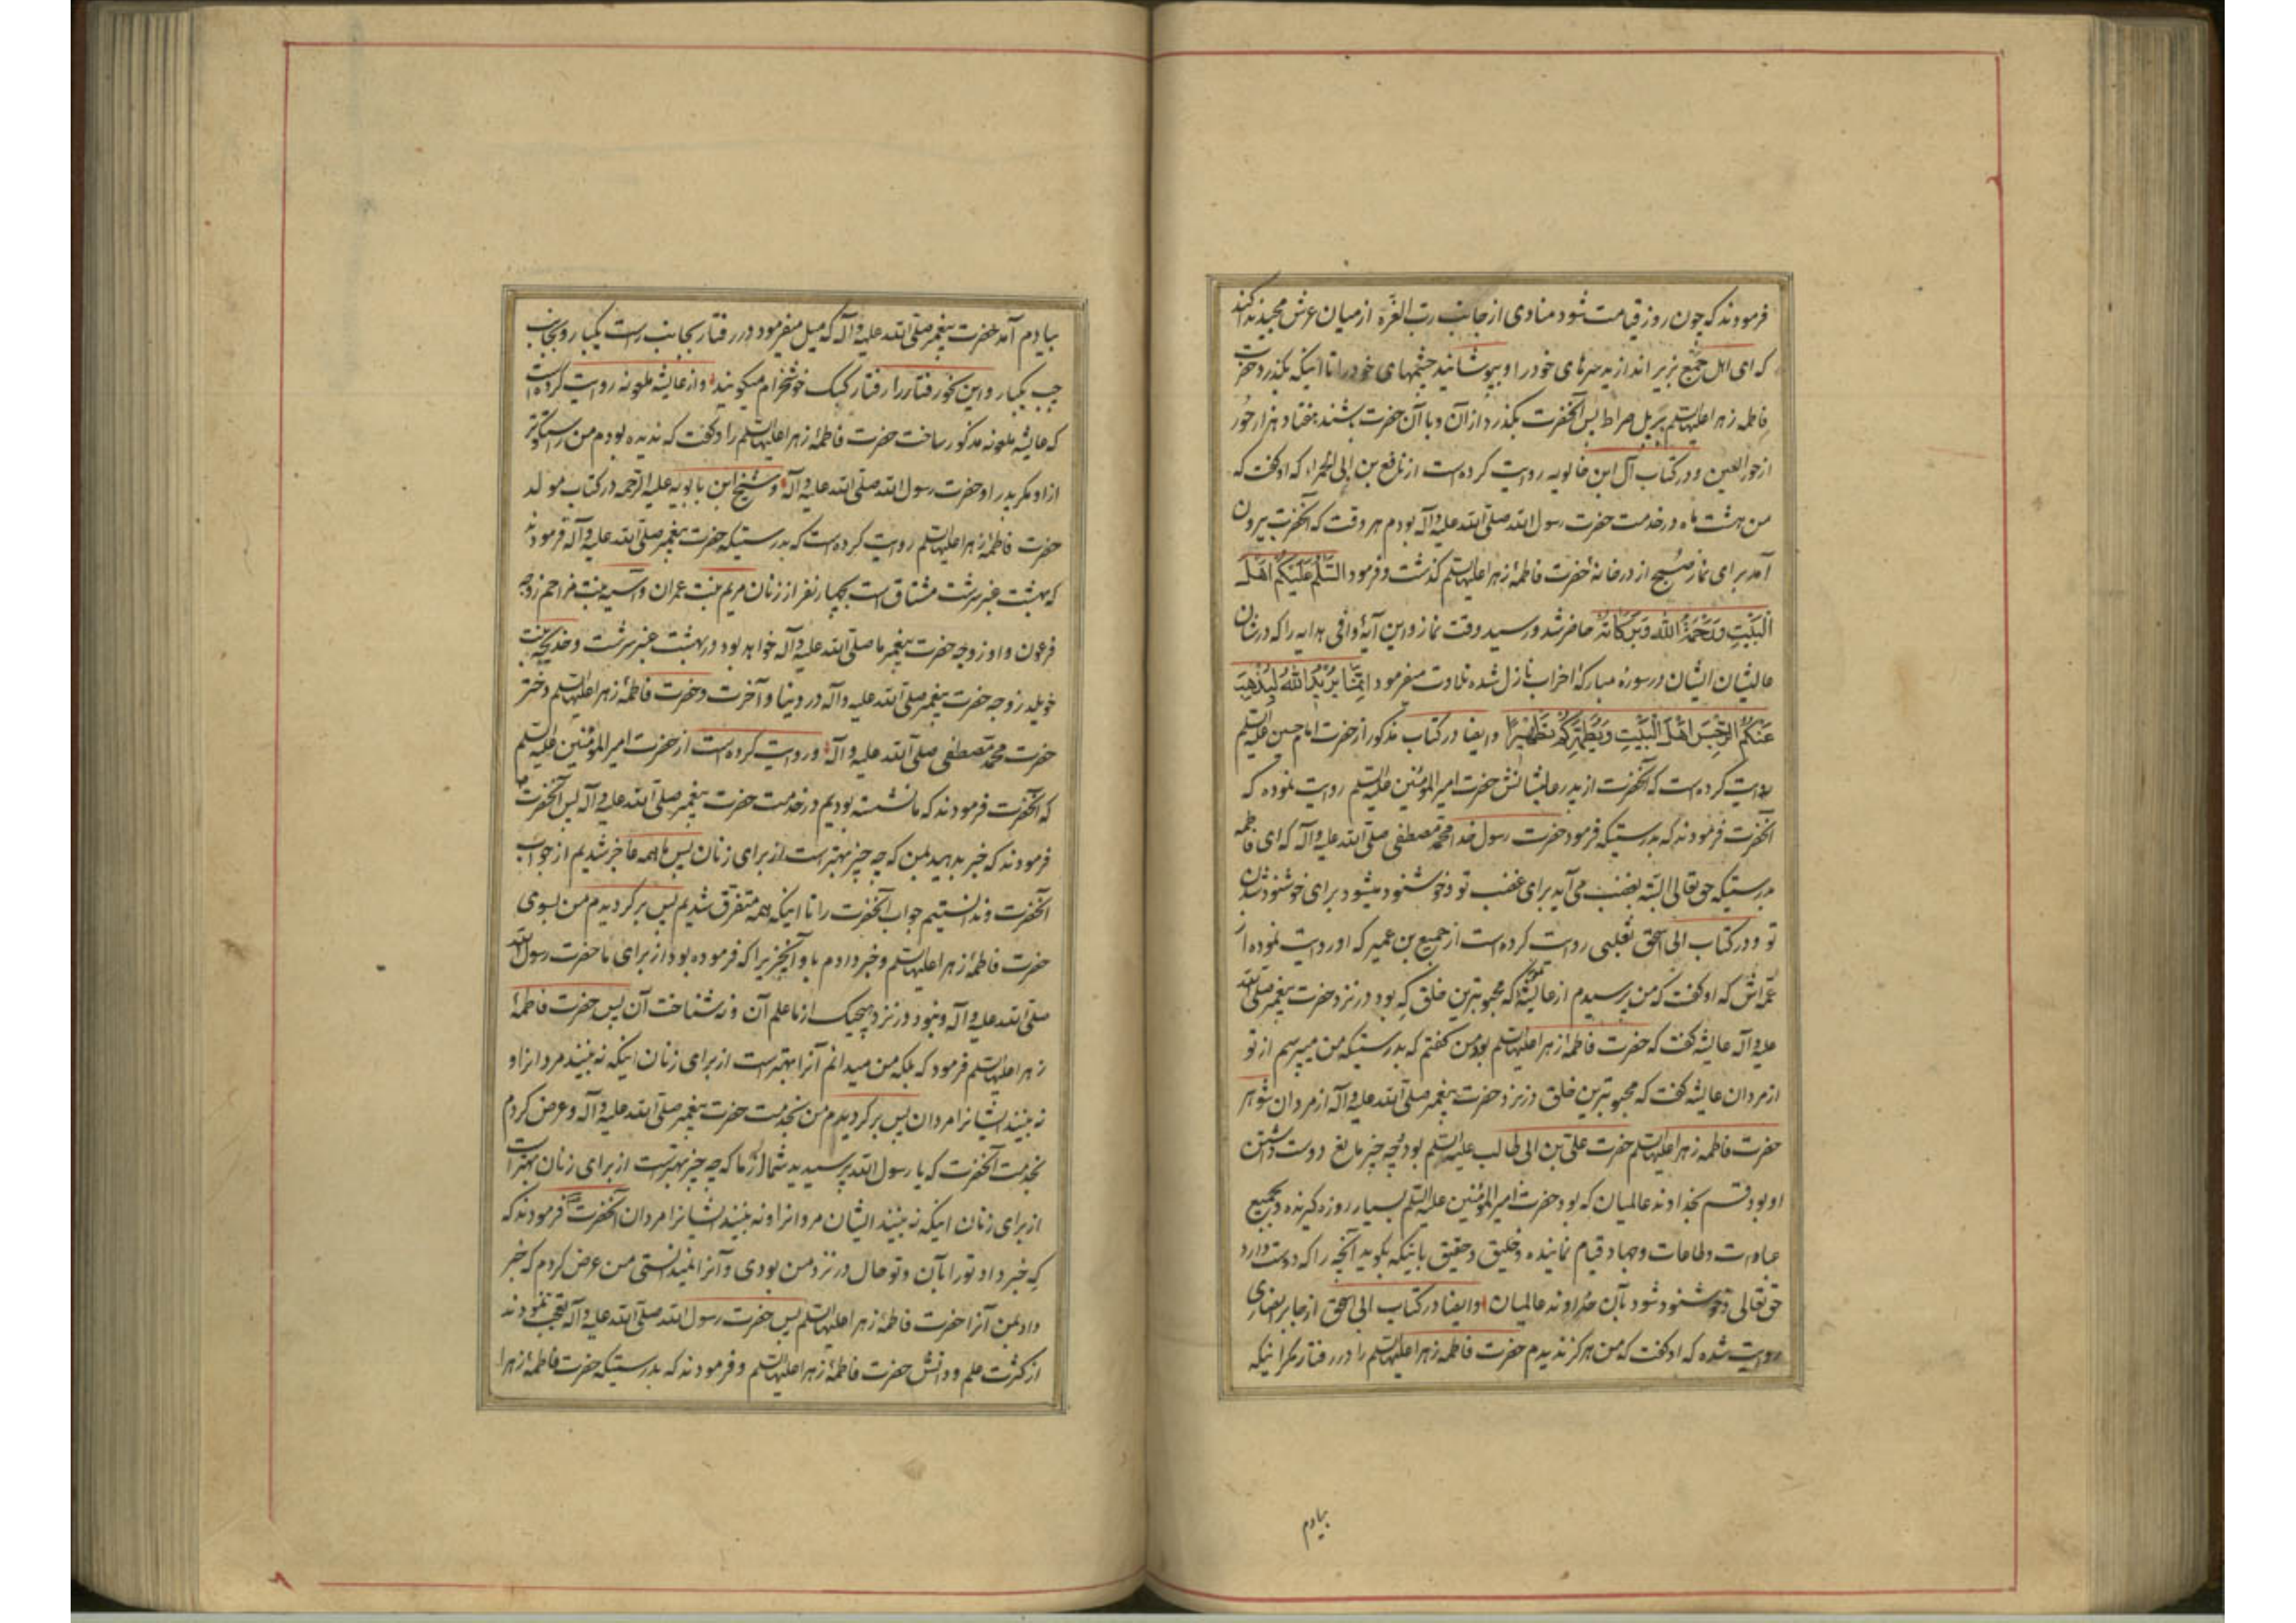 فرمودند که چون روز قیامت شود منادی از جانب رب العزه از میان عرش مجید ندا کند
که ای اهل جمع بزیر اندازید سرهای خود را و بپوشانید چشمهای خود را تا اینکه بگذرد حضرت
فاطمه زهرا علیها السلم بر پل صراط پس آنحضرت بگذرد از آن و با آن حضرت باشند هفتاد هزار حور
از حور العین و در کتاب آل ابن خالویه روایت کرده است از نافع بن ابی الحمراء که او گفت که
من هشت ماه در خدمت حضرت رسول الله صلی الله علیه وآله بودم هر وقت که آنحضرت بیرون
آمد برای نماز صبح از در خانهٔ حضرت فاطمهٔ زهرا علیها السلم گذشت و فرمود السَّلَمُ عَلَیْکُمْ اَهْلَ
الْبَیْتِ وَرَحْمَةُ اللهِ وَبَرَکَاتُهُ حاضر شد و رسید وقت نماز و این آیهٔ وافی هدایه را که در شان
عالیشان ایشان در سورهٔ مبارکهٔ احزاب نازل شده تلاوت میفرمود اِنَّمَا یُرِیْدُ اللهُ لِیُذْهِبَ
عَنْکُمُ الرِّجْسَ اَهْلَ الْبَیْتِ وَیُطَهِّرَکُمْ تَطْهِیْرًا وایضا در کتاب مذکور از حضرت امام حسین علیه السلم
روایت کرده است که آنحضرت از پدر عالیشانش حضرت امیر المؤمنین علیه السلم روایت نموده که
آنحضرت فرمودند که بدرستیکه فرمود حضرت رسول خدا محمد مصطفی صلی الله علیه وآله که ای فاطمه
بدرستیکه حق تعالی البته بغضب می آید برای غضب تو و خوشنود میشود برای خوشنود شدن
تو و در کتاب ابی اسحق ثعلبی روایت کرده است از جمیع بن عمیر که او روایت نموده از
عمه اش که او گفت که من پرسیدم از عایشه که محبوبترین خلق که بود در نزد حضرت پیغمبر صلی الله
علیه وآله عایشه گفت که حضرت فاطمهٔ زهرا علیها السلم بود من گفتم که بدرستیکه من میپرسم از تو
از مردان عایشه گفت که محبوبترین خلق در نزد حضرت پیغمبر صلی الله علیه وآله از مردان شوهر
حضرت فاطمه زهرا علیها السلم حضرت علی بن ابی طالب علیه السلم بود چه چیز مانع دوست داشتن
او بود قسم بخداوند عالمیان که بود حضرت امیر المؤمنین علیه السلم بسیار روزه گیرنده و بجمیع
عبادات وطاعات وجهاد قیام نماینده و خلیق و حقیق باینکه بگوید آنچه را که دوست دارد
حق تعالی و خوشنود شود بآن خداوند عالمیان وایضا در کتاب ابی اسحق از جابر انصاری
روایت شده که او گفت که من هرگز ندیدم حضرت فاطمه زهرا علیها السلم را در رفتار مگر اینکه
بیادم
بیادم آمد حضرت پیغمبر صلی الله علیه وآله که میل میفرمود در رفتار بجانب راست یکبار و بجانب
چپ یکبار و این نحو رفتار را رفتار کبک خوشخرام میگویند و از عایشه ملعونه روایت کرده است
که عایشه ملعونه مذکور ساخت حضرت فاطمهٔ زهرا علیها السلم را و گفت که ندیده بودم من راستگوتر
از او مگر پدر او حضرت رسول الله صلی الله علیه وآله و شیخ ابن بابویه علیه الرحمه در کتاب مولد
حضرت فاطمهٔ زهرا علیها السلم روایت کرده است که بدرستیکه حضرت پیغمبر صلی الله علیه وآله فرمودند
که بهشت عنبر سرشت مشتاق است بچهار نفر از زنان مریم بنت عمران و آسیه بنت مزاحم زوجه
فرعون و او زوجه حضرت پیغمبر ما صلی الله علیه وآله خواهد بود در بهشت عنبر سرشت و خدیجه بنت
خویلد زوجه حضرت پیغمبر صلی الله علیه وآله در دنیا و آخرت و حضرت فاطمهٔ زهرا علیها السلم دختر
حضرت محمد مصطفی صلی الله علیه وآله و روایت کرده است از حضرت امیر المؤمنین علیه السلم
که آنحضرت فرمودند که ما نشسته بودیم در خدمت حضرت پیغمبر صلی الله علیه وآله پس آنحضرت
فرمودند که خبر بدهید بمن که چه چیز بهتر است از برای زنان پس ما همه عاجز شدیم از جواب
آنحضرت و ندانستیم جواب آنحضرت را تا اینکه همه متفرق شدیم پس برگردیدم من بسوی
حضرت فاطمهٔ زهرا علیها السلم و خبر دادم باو آنچیزیرا که فرموده بود از برای ما حضرت رسول الله
صلی الله علیه وآله و نبود در نزد هیچیک از ما علم آن و نه شناخت آن پس حضرت فاطمهٔ
زهرا علیها السلم فرمود که بلکه من میدانم آنرا بهتر است از برای زنان اینکه نه بینند مردانرا و
نه بینند ایشانرا مردان پس برگردیدم من بخدمت حضرت پیغمبر صلی الله علیه وآله و عرض کردم
بخدمت آنحضرت که یا رسول الله پرسیدید شما از ما که چه چیز بهتر است از برای زنان بهتر است
از برای زنان اینکه نه بینند ایشان مردانرا و نه بینند ایشانرا مردان آنحضرت فرمودند که
که خبر داد تو را بآن و تو حال در نزد من بودی و آنرا نمیدانستی من عرض کردم که خبر
داد بمن آنرا حضرت فاطمهٔ زهرا علیها السلم پس حضرت رسول الله صلی الله علیه وآله تعجب نمودند
از کثرت علم و دانش حضرت فاطمهٔ زهرا علیها السلم و فرمودند که بدرستیکه حضرت فاطمهٔ زهرا